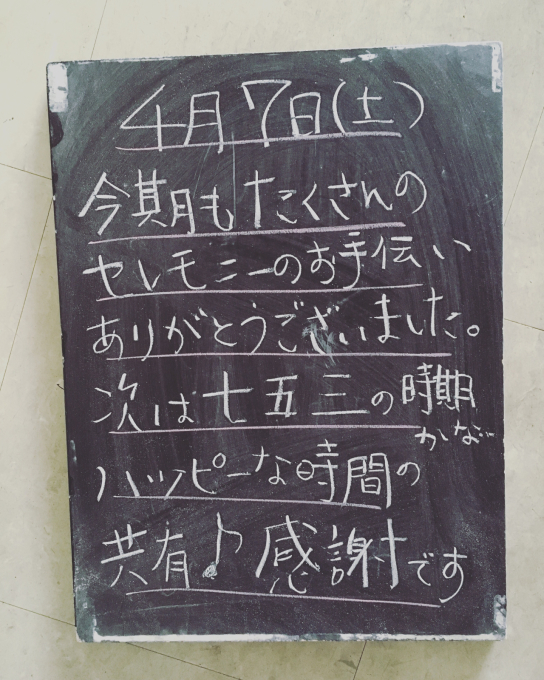 4月7日(土)
今期もたくさんの
セレモニーのお手伝い
ありがとうございました。
次は七五三の時期
かしな…
ハッピーな時間の
共有♪感謝です